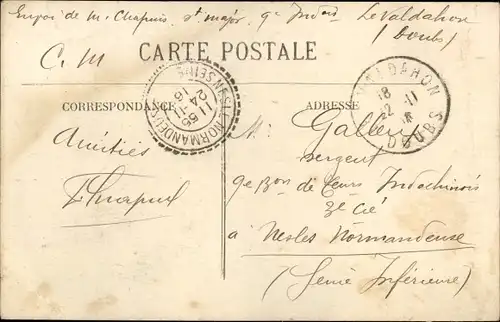 Envoi de M. Chapuis St major 9e Indoch Le Valdahon
(Doubs)
C. M
CARTE POSTALE
CORRESPONDANCE
ADRESSE
NESLE NORMANDEUSE
SEINE INF
11 55
24-11
16
VALDAHON
18
22 -11
16
DOUBS
M.
Gallen
sergent
9e Bon de Tirs Indochinois
3e Cie
à Nesles Normandeuse
(Seine Inférieure)
Amitiés